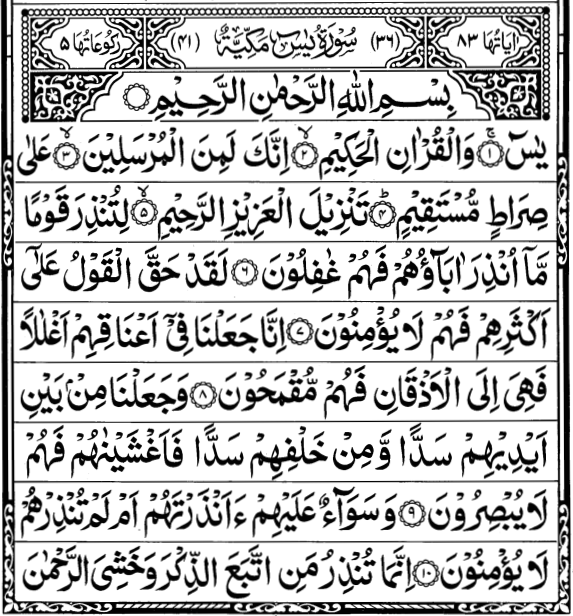 اٰیَاتُهَا ٨٣ (٣٦) سُوْرَةُ يٰسٓ مَكِّيَّةٌ (٤١) رُكُوْعَاتُهَا ٥
بِسْمِ اللّٰهِ الرَّحْمٰنِ الرَّحِيْمِ
يٰسٓ ۚ ﴿١﴾ وَالْقُرْاٰنِ الْحَكِيْمِ ۙ ﴿٢﴾ اِنَّكَ لَمِنَ الْمُرْسَلِيْنَ ۙ ﴿٣﴾ عَلٰى
صِرَاطٍ مُّسْتَقِيْمٍ ؕ ﴿٤﴾ تَنْزِيْلَ الْعَزِيْزِ الرَّحِيْمِ ۙ ﴿٥﴾ لِتُنْذِرَ قَوْمًا
مَّاۤ اُنْذِرَ اٰبَآؤُهُمْ فَهُمْ غٰفِلُوْنَ ﴿٦﴾ لَقَدْ حَقَّ الْقَوْلُ عَلٰۤى
اَكْثَرِهِمْ فَهُمْ لَا يُؤْمِنُوْنَ ﴿٧﴾ اِنَّا جَعَلْنَا فِيْۤ اَعْنَاقِهِمْ اَغْلٰلًا
فَهِىَ اِلَى الْاَذْقَانِ فَهُمْ مُّقْمَحُوْنَ ﴿٨﴾ وَجَعَلْنَا مِنْۢ بَيْنِ
اَيْدِيْهِمْ سَدًّا وَّمِنْ خَلْفِهِمْ سَدًّا فَاَغْشَيْنٰهُمْ فَهُمْ
لَا يُبْصِرُوْنَ ﴿٩﴾ وَسَوَآءٌ عَلَيْهِمْ ءَاَنْذَرْتَهُمْ اَمْ لَمْ تُنْذِرْهُمْ
لَا يُؤْمِنُوْنَ ﴿١٠﴾ اِنَّمَا تُنْذِرُ مَنِ اتَّبَعَ الذِّكْرَ وَخَشِىَ الرَّحْمٰنَ